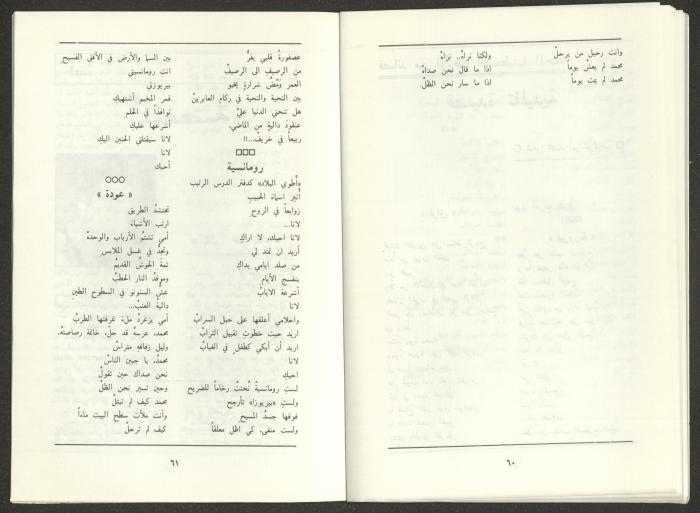 وانت رحيل من يرحلْ
محمد لم يعشْ يوماً
محمد لم يمت يوماً
ولكنا نراهُ.. نراهْ
اذا ما قال نحن صداهْ
اذا ما سار نحن الظلْ.
٦٠
عصفورةُ قلبي يفرُّ
من الرصيفِ الى الرصيفْ
العمر وَمْضُ شرارةٍ يخبو
بين التحية والتحية في ركام العابرينْ
هل تنحني الدنيا عليَّ
عنقودَ داليةٍ من الماضي.
ربيعاً في خريفْ..!!
□□□
رومانسية
«أطوي البلاد» كدفتر الدرس الرتيب
أُثير اسماءَ الحبيبِ
زوابعاً في الروح
لانا...
لانا احبك، لا اراكِ
أريد ان تمتد لي
من صلد ايامي يداكِ
بنفسج الأيام
أشرعة الايابْ
لانا
واحلامي أعلقها على حبل السرابْ
اريد حيث خطوتِ تقبيل الترابْ
اريد أن أبكي كطفلٍ في الغيابْ
لانا
احبكِ
لستِ رومانسيةً نُحتتْ رخاماً للضريح
ولستِ «بيريوزا» تأرجح
فوقها جسدُ المسيح
ولست منفى، كي اظل معلقاً
بين السما والأرض في الأفق الفسيح
انت رومانسيتي
بيريوزتي
قمر المخيم أشتهيكِ
نوافذاً في الحلم
أشرعها عليك
لانا سيقتلني الحنين اليكِ
لانا
أحبك
○○○
« عودة »
تحتشدُ الطريق
ارتب الأشياءَ
أمي تشتمُ الأرباب والوحدهْ
وتجدُّ في غسل الملابس
ثمة الحوشُ القديمُ
وموقدُ النار الحطبْ
عشُ السنونو في السطوح الطين
داليةُ العنبْ...
أمي يزغردُ ملءَ غرفتها الطربْ
محمد، عرسهُ قد حلّ، خاتمة رصاصتهُ،
وليل زفافهِ متراسُ
محمدٌ، يا جبين الناسْ
نحن صداك حين تقولْ
وحين تسير نحن الظلْ
محمد كيف لم تبتلْ
وأنت ملأت سطح البيت ماءاً
كيف لم ترحلْ
٦١